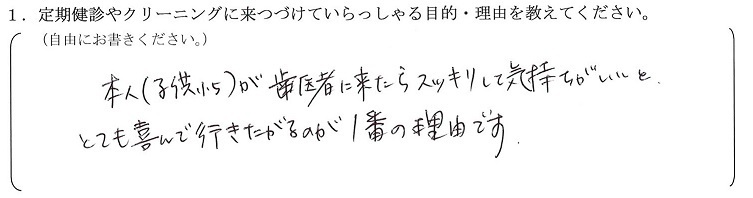 1．定期健診やクリーニングに来つづけていらっしゃる目的・理由を教えてください。
（自由にお書きください。）
本人(子供小5)が歯医者に来たらスッキリして気持ちがいいと、
とても喜んで行きたがるのが1番の理由です.